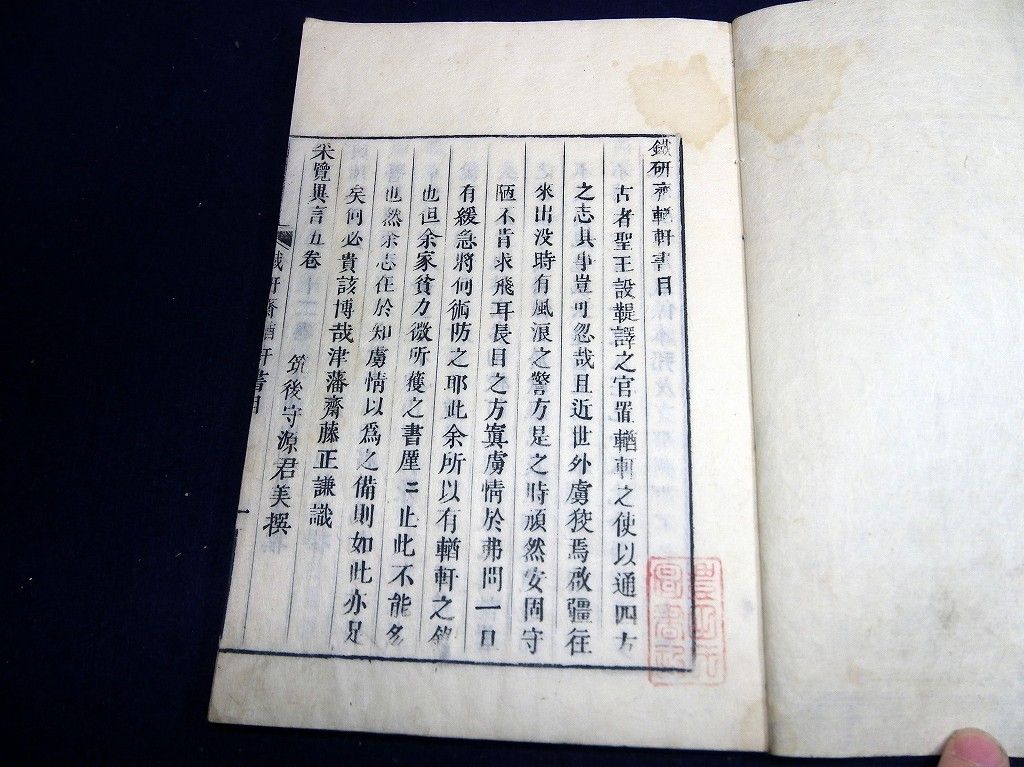 鐵研齋輶軒書目
古者聖王設鞮譯之官置輶軒之使以通四方
之志其事豈可忽哉且近世外虜狡焉啟疆往
來出没時有風浪之警方是之時頑然安固守
陋不肯求飛耳長目之方寘虜情於弗問一旦
有緩急將何術防之耶此余所以有輶軒之
也但余家貧力微所獲之書厪二止此不能多
也然余志在於知虜情以爲之備則如此亦足
矣何必貴該博哉津藩齋藤正謙識
采覽異言五卷　筑後守源君美撰
鐵研齋輶軒書目　一